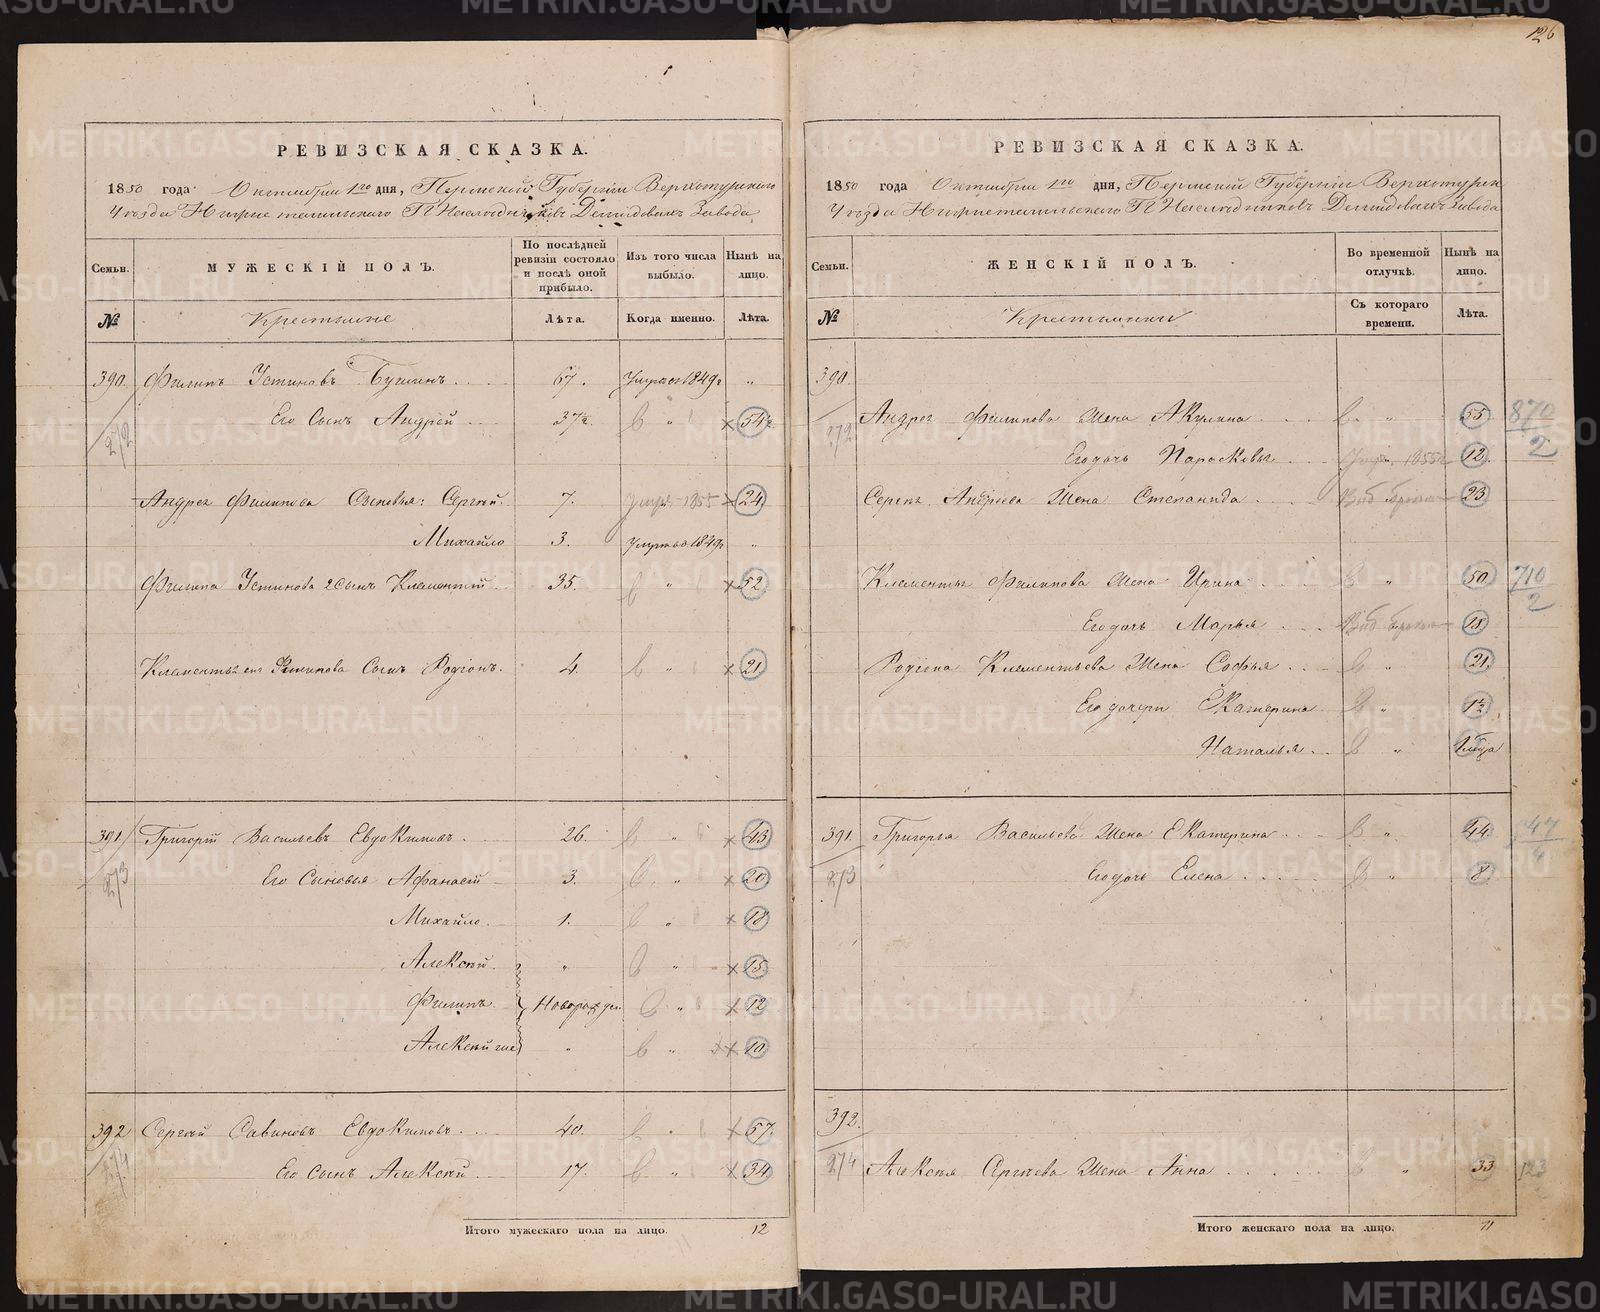 126
РЕВИЗСКАЯ СКАЗКА.
1850 года Октября 1го дня, Пермской Губернiи Верхотурскаго
Уѣзда Нижнетагильскаго Г. Наслѣдниковъ Демидовыхъ Завода
Семьи.
МУЖЕСКІЙ ПОЛЪ.
По послѣдней ревизіи состояло и послѣ оной прибыло.
Изъ того числа выбыло.
Нынѣ на лицо.
№
Крестьяне
Лѣта.
Когда именно.
Лѣта.
390. Филипъ Устиновъ 67. Умръ 1849г „
272 Его Сынъ Андрей 37½. „ 54½
Андрея Филипова Сыновья: Сергѣй. 7. Умръ 1855 24
Михайло 3. Умръ 1849г „
Филипа Устинова 2 Сынъ Климентiй 35. „ 52
Климентья Филипова Сынъ Родiонъ. 4. „ 21
391 Григорiй Васильевъ Евдокимовъ. 26. „ 43
273 Его Сыновья Афанасiй 3. „ 20
Михайло. 1. „ 18
Алексѣй. „ „ 15
Филипъ. Новорожден „ 12
Алексѣй же „ „ 10
392 Сергѣй Савиновъ Евдокимовъ. 40. „ 57.
274 Его сынъ Алексѣй 17. „ 34
Итого мужескаго пола на лицо. 12
РЕВИЗСКАЯ СКАЗКА.
1850 года Октября 1го дня, Пермской Губернiи Верхотурск
Уѣзда Нижнетагильскаго Г. Наслѣдниковъ Демидовыхъ Завода
Семьи.
ЖЕНСКІЙ ПОЛЪ.
Во временной отлучкѣ.
Нынѣ на лицо.
№
Крестьянки
Съ котораго времени.
Лѣта.
390.
272 Андрея Филипова Жена Акулина „ 55 870/2
Его дочь Парасковья 1855 12.
Сергѣя Андреева Жена Степанида 23
Климентья Филипова Жена Ирина „ 50 710/2
Его дочь Марья 18
Родiона Климентьева Жена Софья „ 21
Его дочери Екатерина „ 1½
Наталья „
391. Григорья Васильева Жена Екатерина „ 44
273 Его дочь Елена „ 8
392.
274 Алексѣя Сергѣева Жена Анна „ 33
Итого женскаго пола на лицо. 11
METRIKI.GASO-URAL.RU